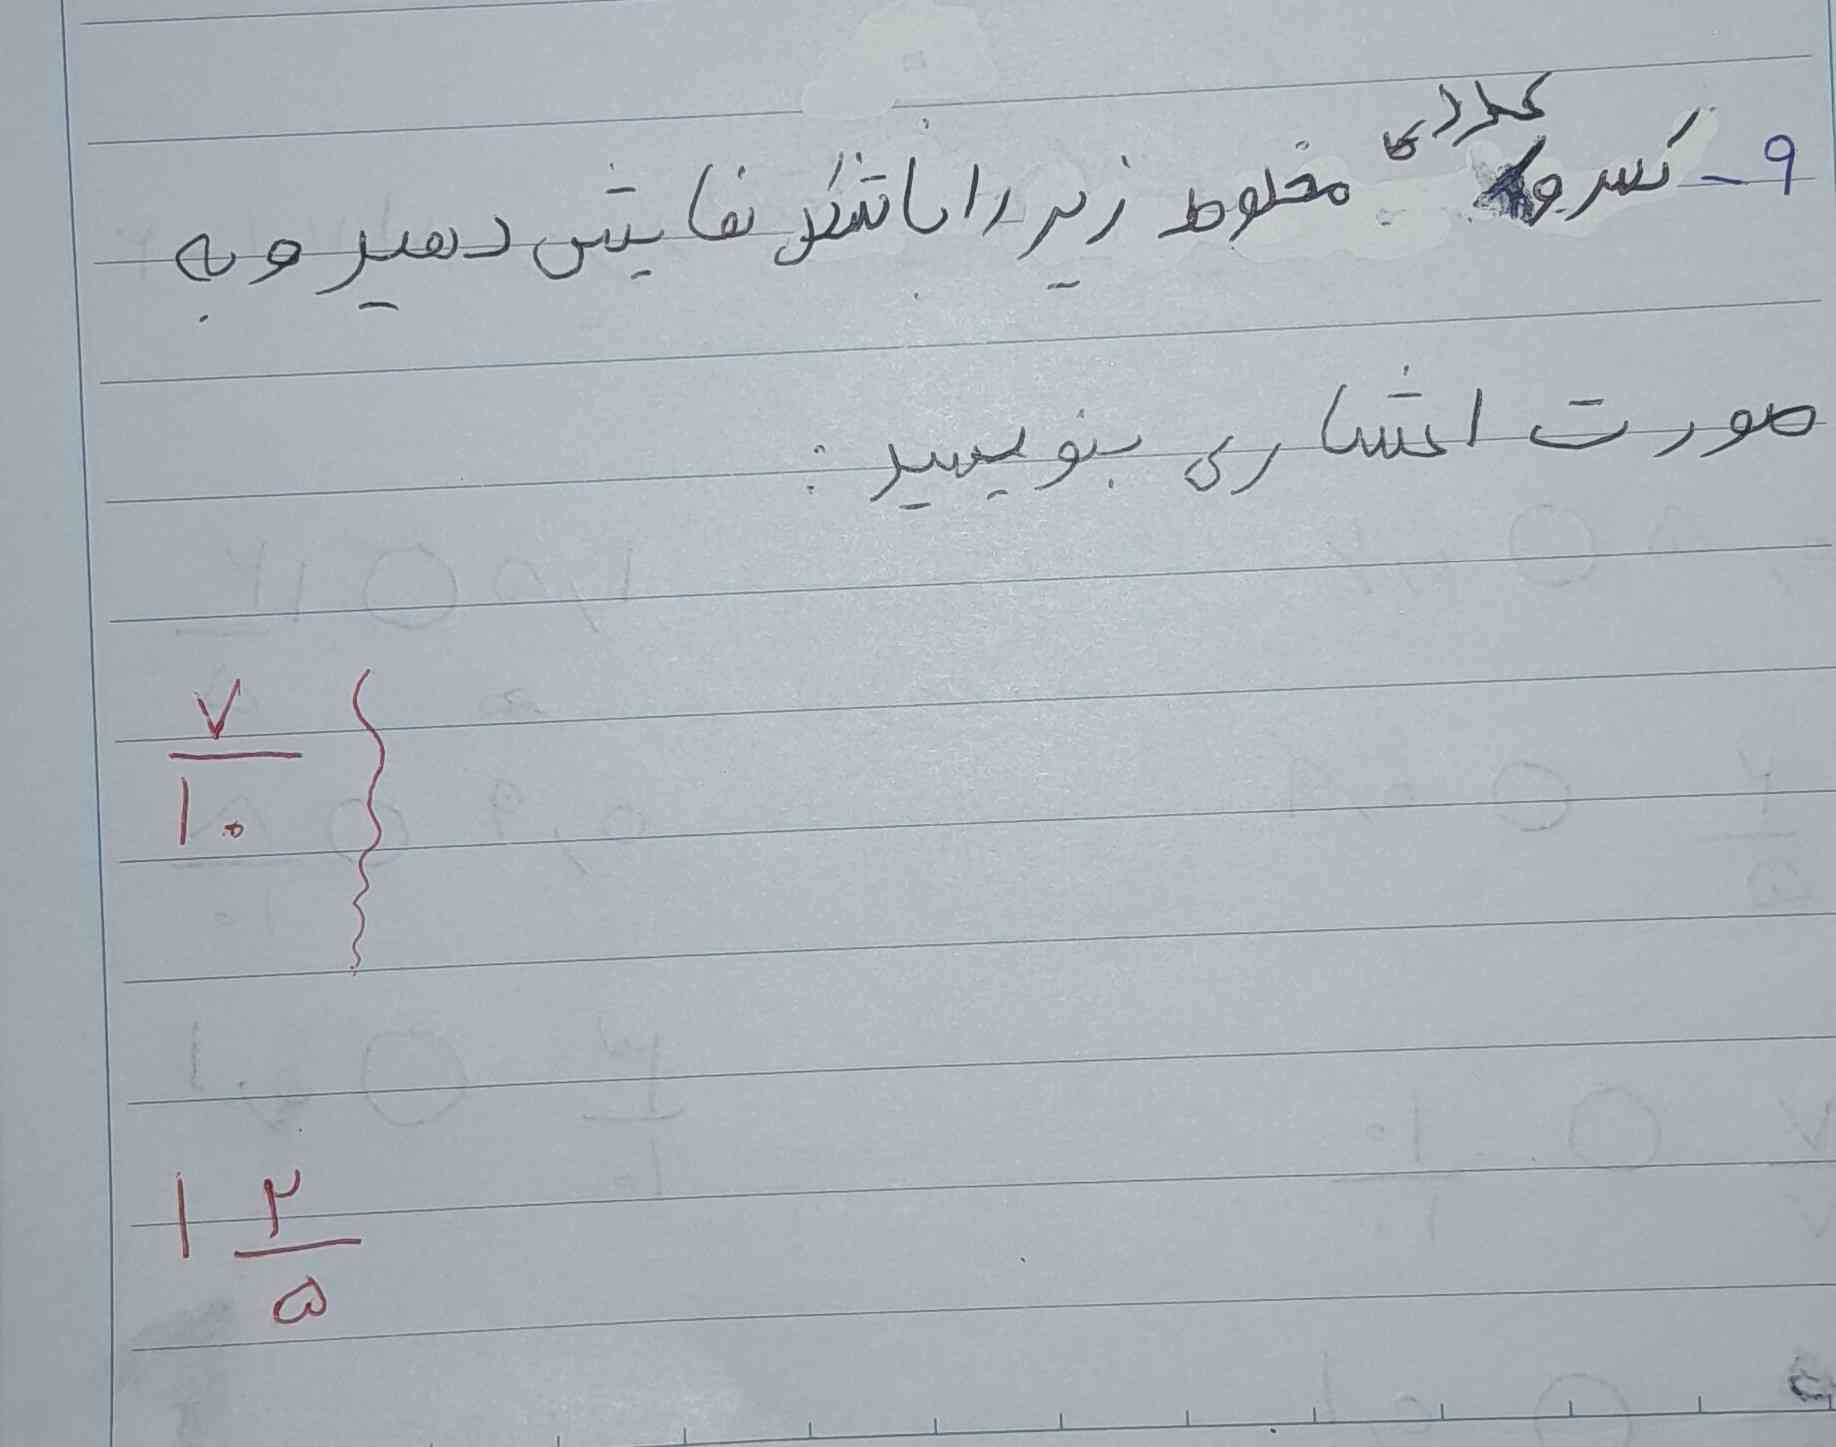 ۹ـ کسر و عددهای مخلوط زیر را با شکل نمایش دهید و به
صورت اعشاری بنویسید :
۷
۱۰
۱ ۲
۵